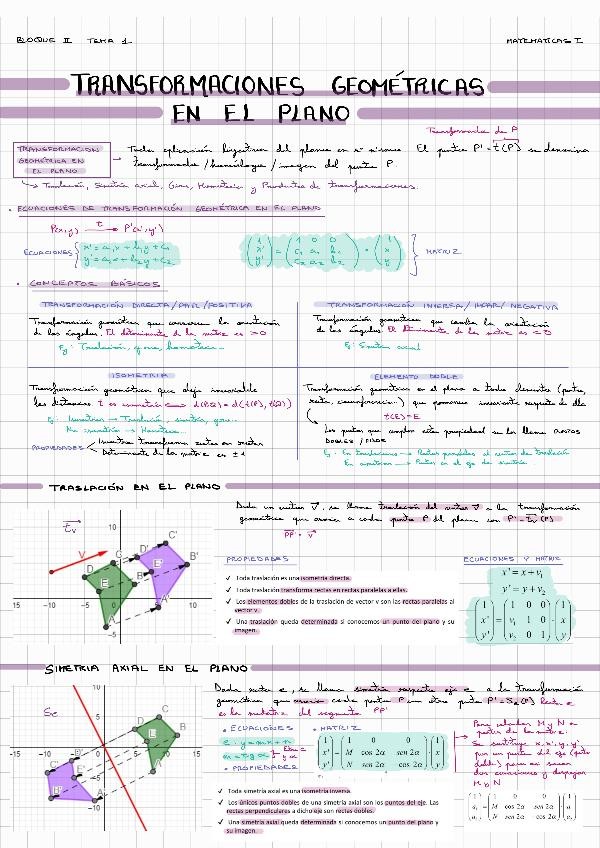 BLOQUE II TEMA 1
MATEMÁTICAS I
TRANSFORMACIONES GEOMÉTRICAS
EN EL PLANO
Transformada de P
TRANSFORMACIÓN
GEOMÉTRICA EN
EL PLANO
Toda aplicación biyectiva del plano en sí mismo. El punto P' = t(P) se denomina
transformado/homólogo/imagen del punto P.
Traslación, Simetría axial, Giros, Homotecia y Productos de transformaciones.
• ECUACIONES DE TRANSFORMACIÓN GEOMÉTRICA EN EL PLANO
P(x,y) t P'(x',y')
ECUACIONES
x' = a₁x + b₁y + c₁
y' = a₂x + b₂y + c₂
MATRIZ
• CONCEPTOS BÁSICOS
TRANSFORMACIÓN DIRECTA/PAR/POSITIVA
Transformación geométrica que conserva la orientación
de los ángulos. El determinante de la matriz es >0
Ej: Traslación, giros, homotecia...
TRANSFORMACIÓN INVERSA/IMPAR/NEGATIVA
Transformación geométrica que cambia la orientación
de los ángulos. El determinante de la matriz es <0
Ej: Simetría axial
ISOMETRÍA
Transformación geométrica que deja invariable
las distancias. t es isometría d(P,Q) = d(t(P), t(Q))
Ej: Isometrías → Traslación, simetría, giro...
No isometría → Homotecia...
PROPIEDADES
Isometrías transforman rectas en rectas
Determinante de la matriz es ±1
ELEMENTO DOBLE
Transformación geométrica en el plano a todo elemento (punto,
recta, circunferencia) que permanece invariante respecto de ella
t(E)=E
Los puntos que cumplen esta propiedad se les llama PUNTOS
DOBLES / FIJOS
Ej: En traslaciones → Rectas paralelas al vector de traslación
En simetrías → Puntos en el eje de simetría
TRASLACIÓN EN EL PLANO
Dado un vector V, se llama traslación del vector V a la transformación
geométrica que asocia a cada punto P del plano con P' = tv(P)
PP' = v
PROPIEDADES
✓ Toda traslación es una isometría directa.
✓ Toda traslación transforma rectas en rectas paralelas a ellas.
✓ Los elementos dobles de la traslación de vector v son las rectas paralelas al
vector v.
✓ Una traslación queda determinada si conocemos un punto del plano y su
imagen.
ECUACIONES Y MATRIZ
x' = x + v₁
y' = y + v₂
SIMETRÍA AXIAL EN EL PLANO
Dada recta e, se llama simetría respecto eje e a la transformación
geométrica que asocia cada punto P con otro punto P' = Se(P) Recta e
es la mediatriz del segmento PP'
• ECUACIONES
e: y = mx + n
m = tg α
• PROPIEDADES
• MATRIZ
Para calcular M y N a
partir de la matriz:
Se sustituye x, x', y, y'
por un punto del eje (punto
doble) para así sacar
dos ecuaciones y despejar
M y N
✓ Toda simetría axial es una isometría inversa.
✓ Los únicos puntos dobles de una simetría axial son los puntos del eje. Las
rectas perpendiculares a dicho eje son rectas dobles.
✓ Una simetría axial queda determinada si conocemos un punto del plano y
su imagen.